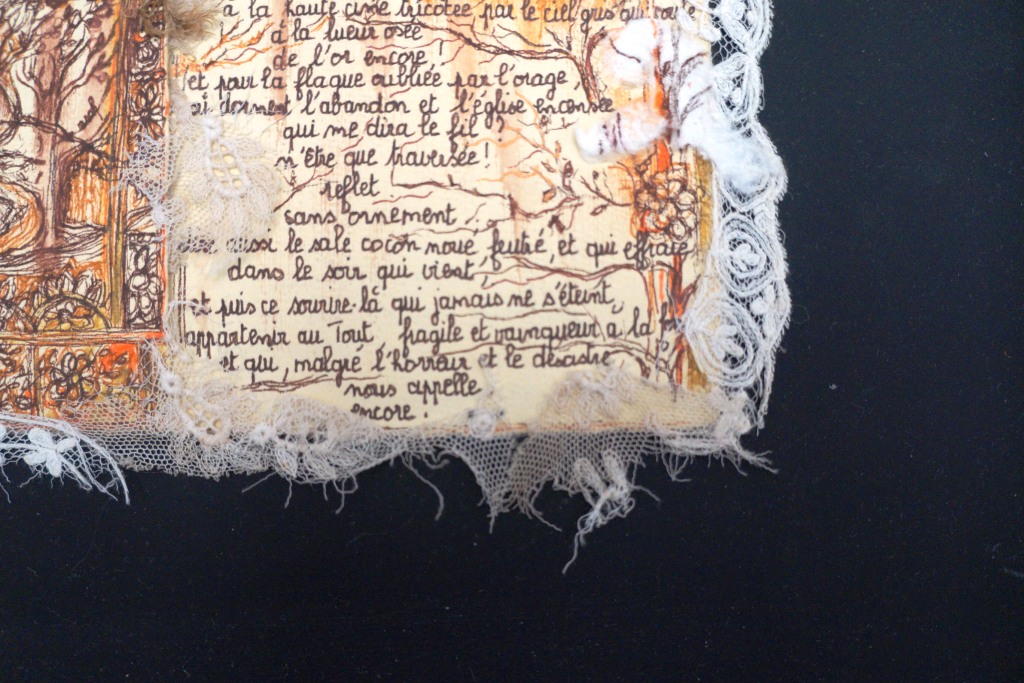 à la haute cime tricotée par le ciel gris qui
à la lueur osée
de l'or encore !
et pour la flaque oubliée par l'orage,
dorment l'abandon et l'église encensée
qui me dira le fil ?
n'être que traversée !
reflet
sans ornement.
aussi le sale cocon noué, feutré, et qui effracte
dans le soir qui vient,
et puis ce sourire-là qui jamais ne s'éteint,
appartenir au Tout, fragile et vainqueur à la
et qui, malgré l'horreur et le désastre
nous appelle
encore !